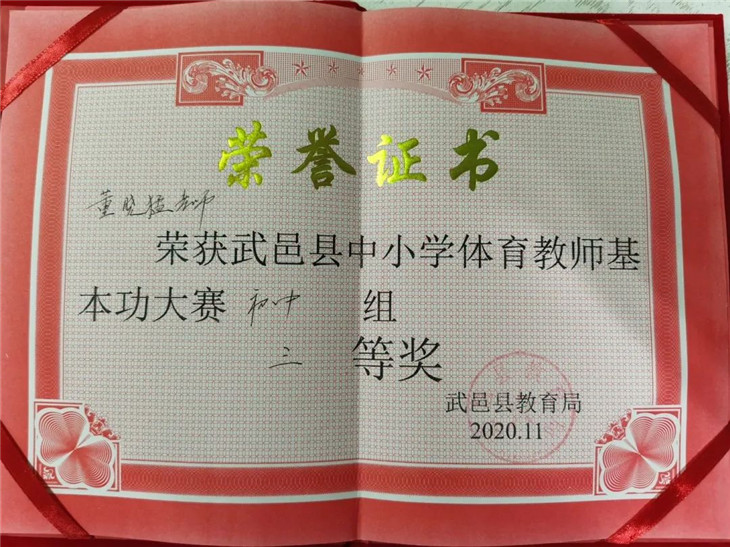 荣誉证书
董晓猛老师
荣获武邑县中小学体育教师基
本功大赛 初中 组
三 等奖
武邑县教育局
2020.11